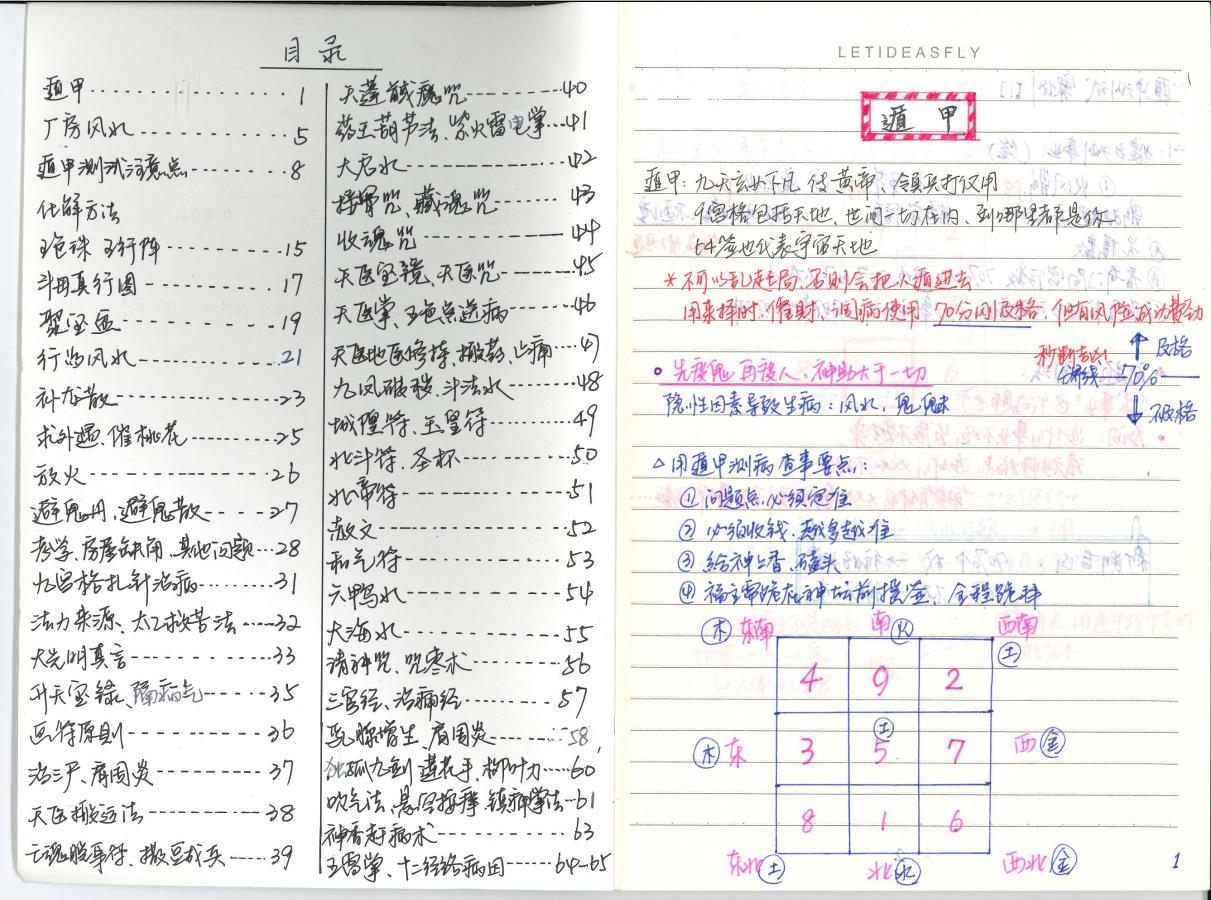 目录
遁甲 1
厂房风水 5
遁甲测试注意点 8
化解方法
五色珠 五行阵 15
斗田真行图 17
聚宝盆 19
行的风水 21
补龙散 23
求外遇、催桃花 25
放火 26
避鬼丹、避鬼散 27
考学、房屋缺角、其他问题 28
九宫格扎针治病 31
法力来源、太乙救苦法 32
大光明真言 33
升天宝箓、隔病气 35
画符原则 36
治三尸、肩周炎 37
天医搬运法 38
亡魂脱身符、撒豆成兵 39
天蓬馘魔咒 40
药王葫芦法、紫火雷电掌 41
大启水 42
接骨咒、藏魂咒 43
收魂咒 44
天医宝镜、天医咒 45
天医掌、五色点送病 46
天医地医修持、搬药、止痛 47
九凤破秽、斗法水 48
城隍符、玉皇符 49
北斗符、圣杯 50
北帝符 51
散文 52
和气符 53
六鸭水 54
大海水 55
请神咒、咒枣术 56
三官经、治病经 57
乳腺增生、肩周炎 58
独孤九剑 莲花手、柳叶刀 60
吹气法、悬空按摩、镇神掌法 61
神香赶病术 63
五雷掌、十二经络病因 64-65
LETIDEASFLY
遁 甲
遁甲：九天玄女下凡 传黄帝、领兵打仗用
9宫格包括天地、世间一切在内、到哪里都是你
64签也代表宇宙天地
*不可以乱起局、否则会把人遁进去
用来择时、催财、调病使用 70分以及格、但有风险
秒断吉凶
分界线 70%
及格
不及格
先投鬼 再投人 神助大于一切
隐性因素导致生病：风水，鬼魅
△用遁甲测病查事要点：
① 问题点、必须定准
② 必须收钱、越多越准
③ 给神上香、磕头
④ 福主需跪在神坛前摸签、全程跪拜
木 东南 南 火 西南 土
4 9 2
木 东 3 土 5 7 西 金
8 1 6
东北 土 北 水 西北 金
1